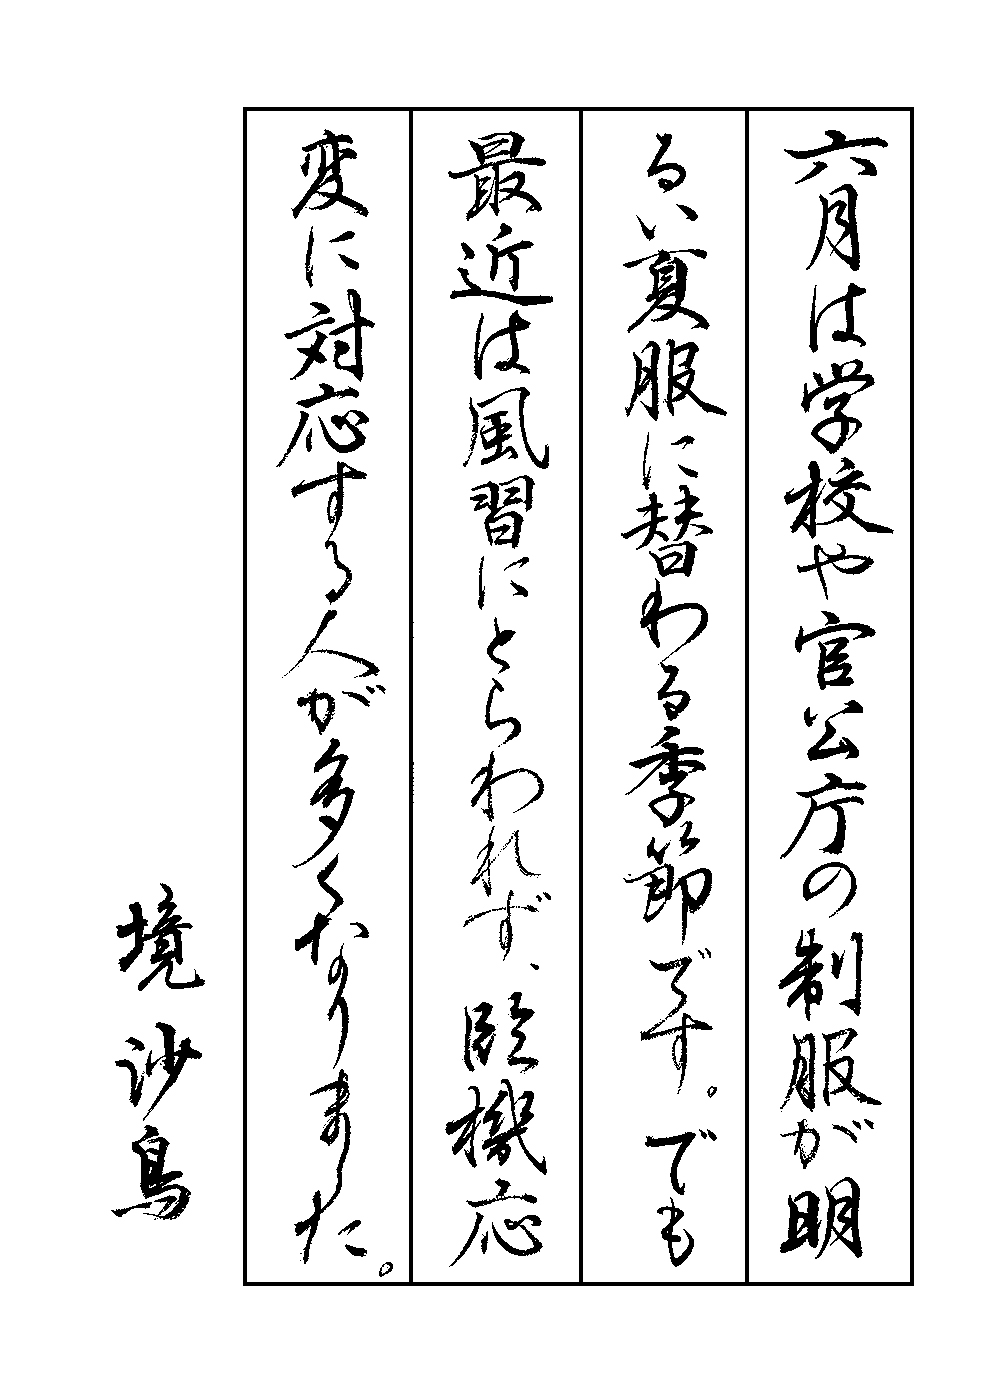 六月は学校や官公庁の制服が明
るい夏服に替わる季節です。でも
最近は風習にとらわれず、臨機応
変に対応する人が多くなりました。
境 沙鳥